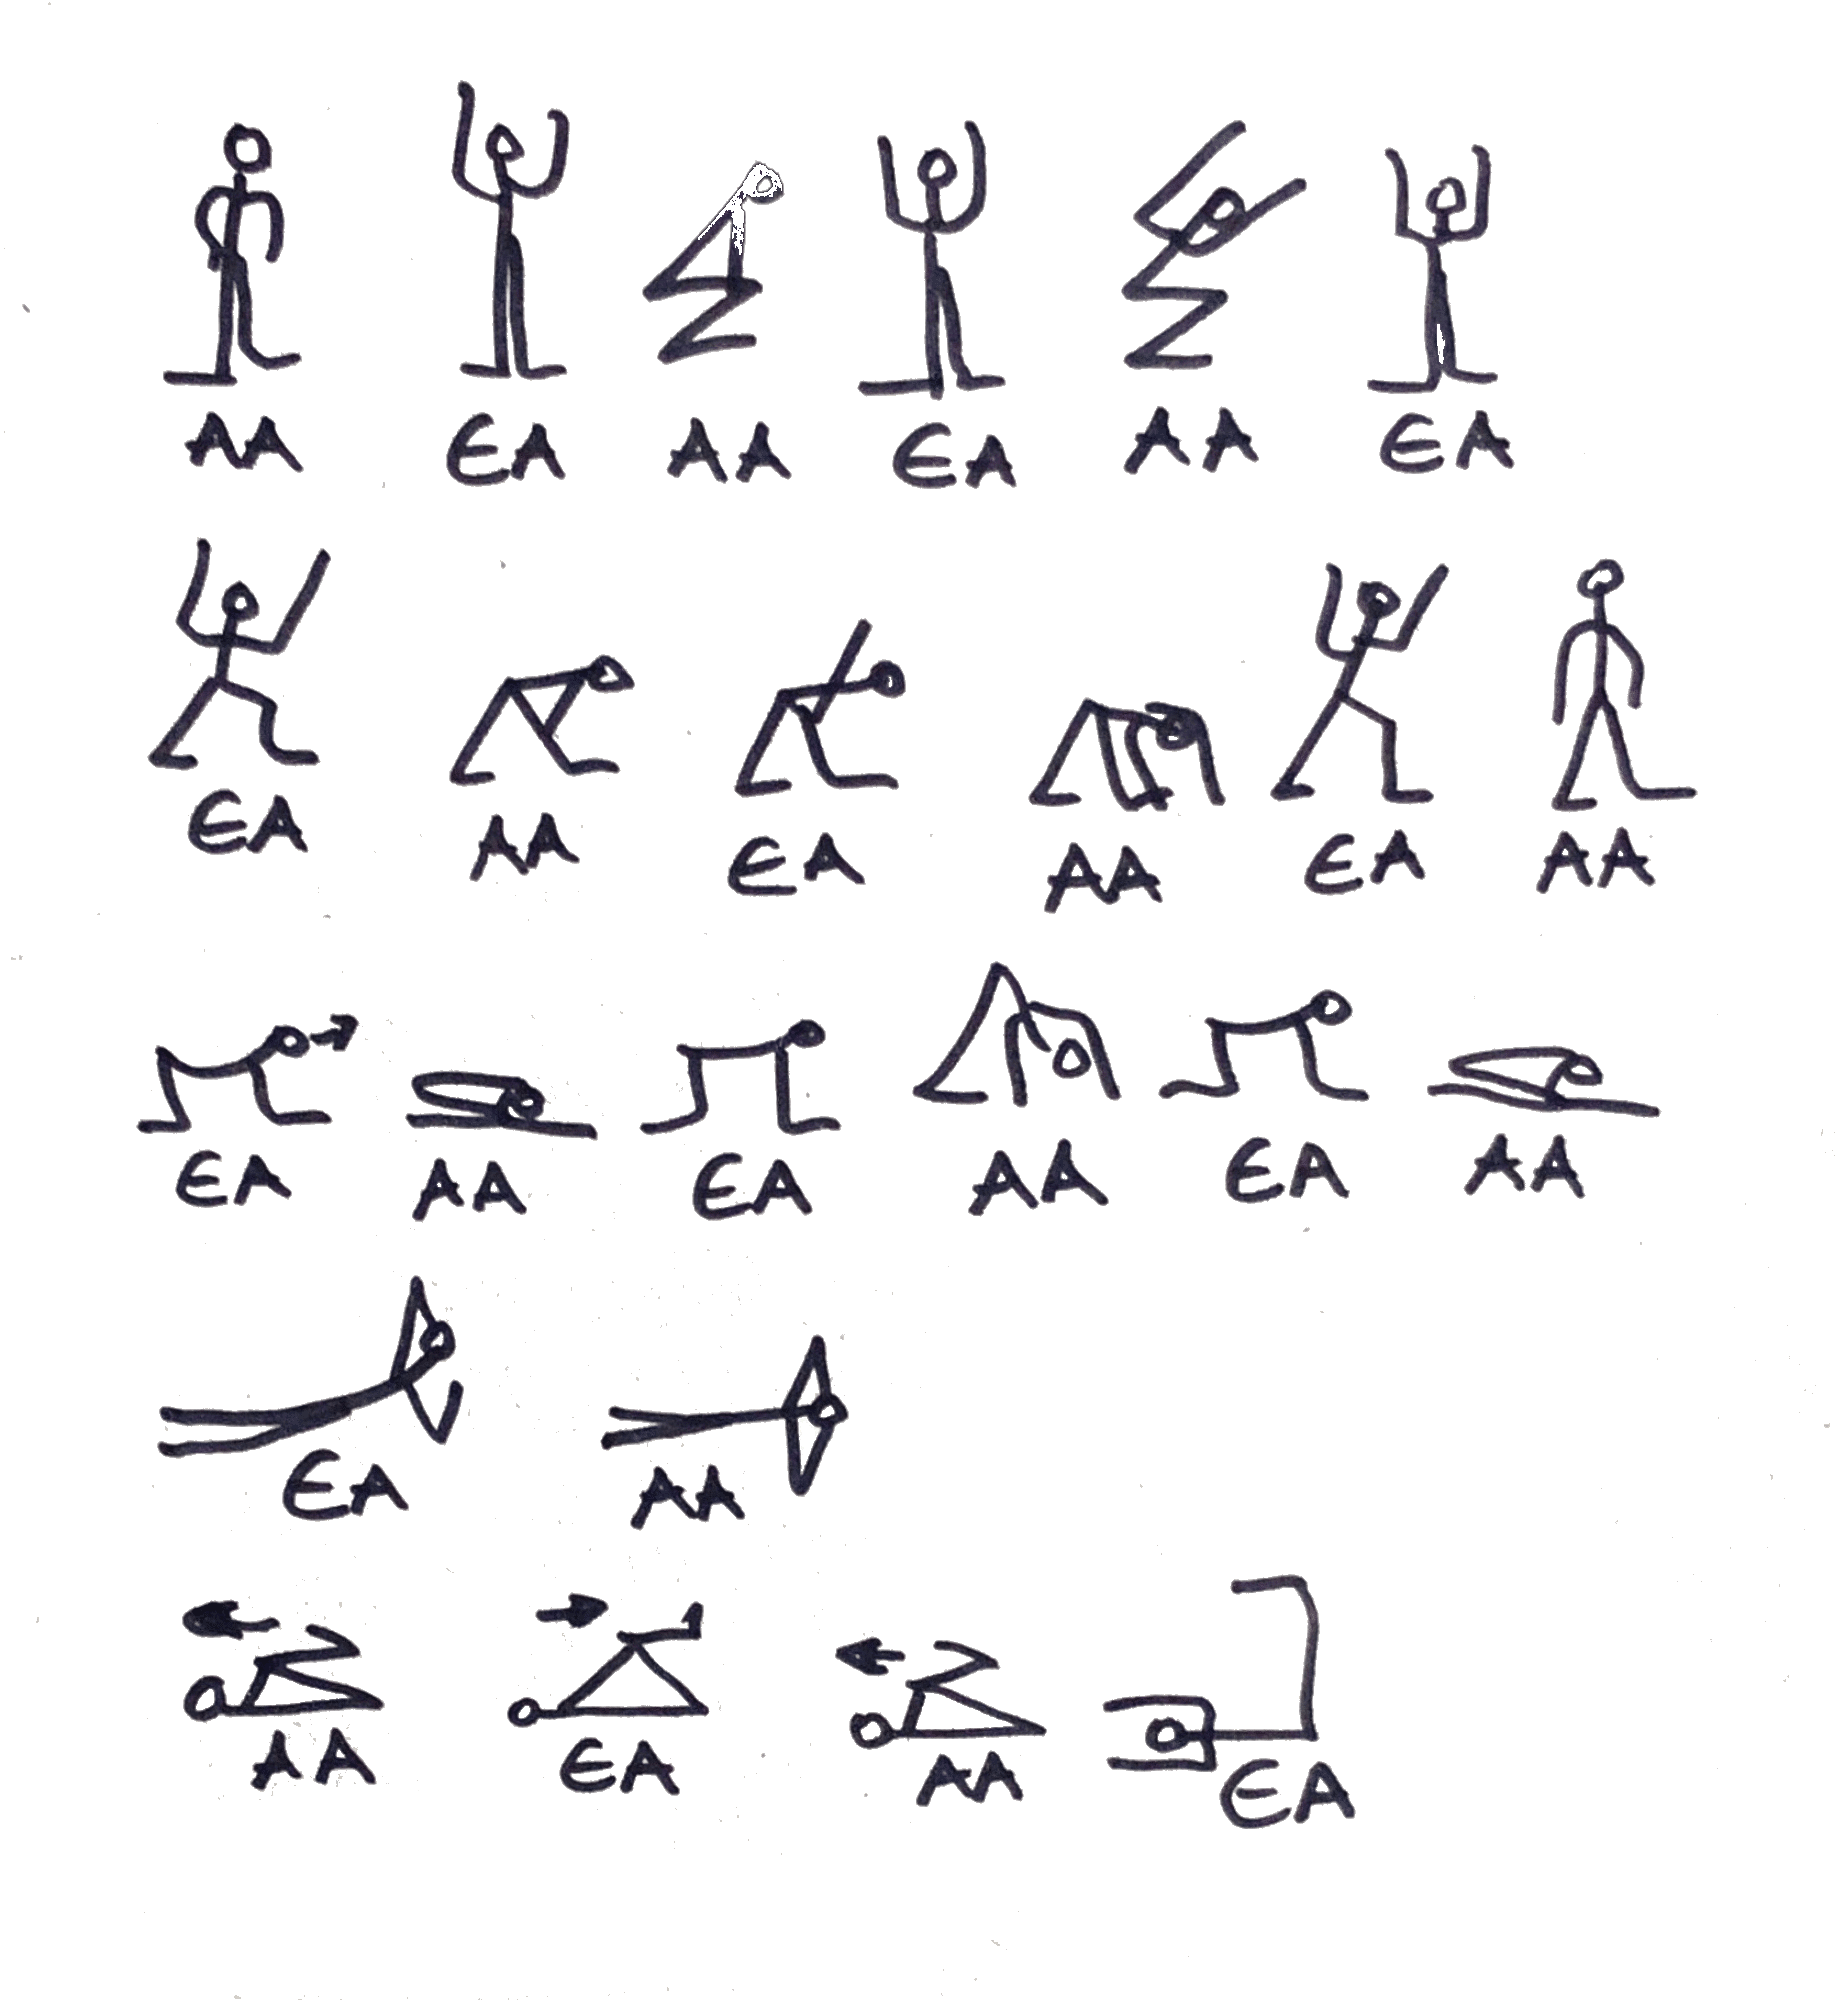 AA EA AA EA AA EA
EA AA EA AA EA AA
EA AA EA AA EA AA
EA AA
AA EA AA EA